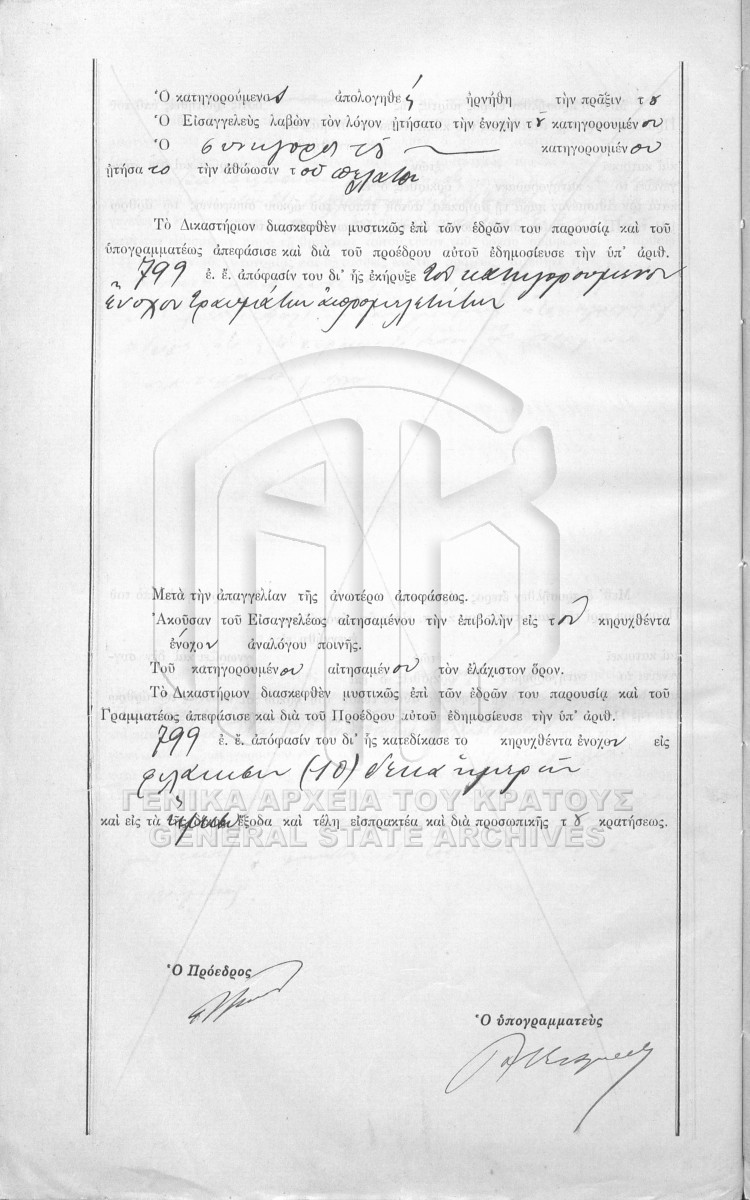 Ὁ κατηγορούμενος ἀπολογηθεὶς ἠρνήθη τὴν πρᾶξιν του
Ὁ Εἰσαγγελεὺς λαβὼν τὸν λόγον ᾐτήσατο τὴν ἐνοχὴν τοῦ κατηγορουμένου
Ὁ συνήγορος τοῦ κατηγορουμένου
ᾐτήσατο τὴν ἀθώωσιν τοῦ πελάτου
Τὸ Δικαστήριον διασκεφθὲν μυστικῶς ἐπὶ τῶν ἑδρῶν του παρουσίᾳ καὶ τοῦ
ὑπογραμματέως ἀπεφάσισε καὶ διὰ τοῦ προέδρου αὐτοῦ ἐδημοσίευσε τὴν ὑπ' ἀριθ.
799 ἐ. ἔ. ἀπόφασίν του δι' ἧς ἐκήρυξε τὸν κατηγορούμενον
ἔνοχον τραυμάτων ἀπρομελετήτων
Μετὰ τὴν ἀπαγγελίαν τῆς ἀνωτέρω ἀποφάσεως.
Ἀκοῦσαν τοῦ Εἰσαγγελέως αἰτησαμένου τὴν ἐπιβολὴν εἰς τὸν κηρυχθέντα
ἔνοχον ἀναλόγου ποινῆς.
Τοῦ κατηγορουμένου αἰτησαμένου τὸν ἐλάχιστον ὅρον.
Τὸ Δικαστήριον διασκεφθὲν μυστικῶς ἐπὶ τῶν ἑδρῶν του παρουσίᾳ καὶ τοῦ
Γραμματέως ἀπεφάσισε καὶ διὰ τοῦ Προέδρου αὐτοῦ ἐδημοσίευσε τὴν ὑπ' ἀριθ.
799 ἐ. ἔ. ἀπόφασίν του δι' ἧς κατεδίκασε το κηρυχθέντα ἔνοχον εἰς
φυλάκισιν (10) δέκα ἡμερῶν
ΓΕΝΙΚΑ ΑΡΧΕΙΑ ΤΟΥ ΚΡΑΤΟΥΣ
καὶ εἰς τὰ ἔξοδα καὶ τέλη εἰσπρακτέα καὶ διὰ προσωπικῆς του κρατήσεως.
GENERAL STATE ARCHIVES
Ὁ Πρόεδρος
Ὁ ὑπογραμματεὺς